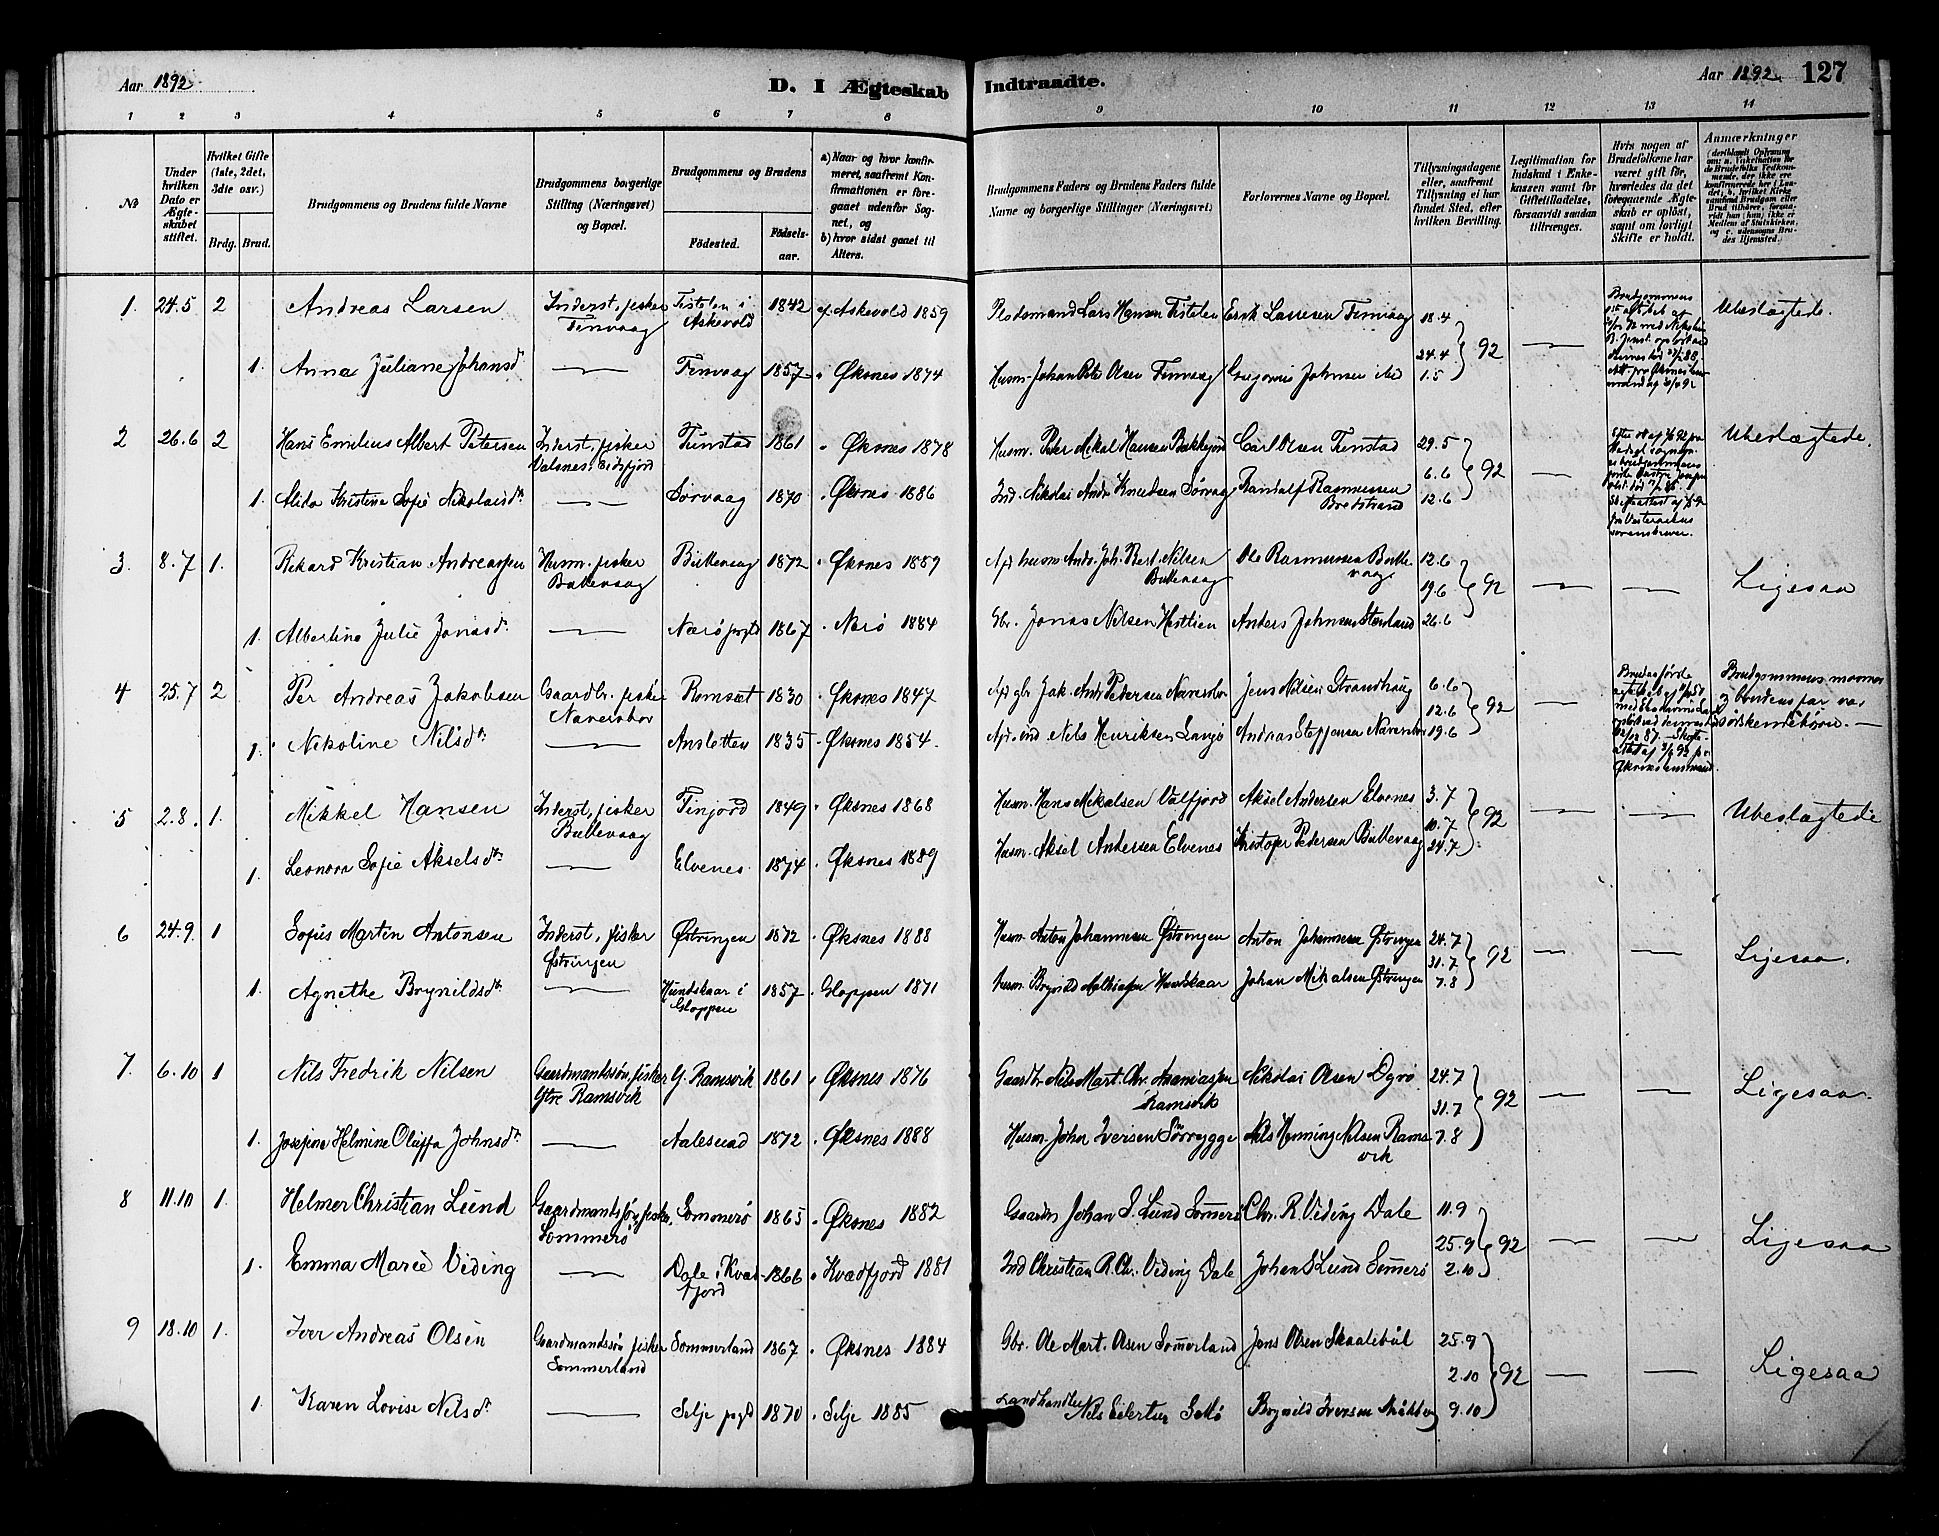 Aar 1892
D. I Ægteskab
Indtraadte.
Aar 1892. 127
1 2 3 4 5 6 7 8 9 10 11 12 13 14
No
Under hvilken Dato er Ægteskabet stiftet.
Hvilket Gifte (1ste, 2det, 3die osv.)
Brdg. Brud.
Brudgommens og Brudens fulde Navne
Brudgommens borgerlige Stilling (Næringsvei) og Bopæl.
Brudgommens og Brudens
Fødested. Fødselsaar.
a) Naar og hvor konfirmeret, saafremt Konfirmationen er foregaaet udenfor Sognet, og
b) hvor sidst gaaet til Alters.
Brudgommens Faders og Brudens Faders fulde Navne og borgerlige Stillinger (Næringsvei)
Forlovernes Navne og Bopæl.
Tillysningsdagene eller, saafremt Tillysning ei har fundet Sted, efter hvilken Bevilling.
Legitimation for Indskud i Enkekassen samt for Giftetilladelse, forsaavidt saadan tiltrænges.
Hvis nogen af Brudefolkene har været gift før, hvorledes da det foregaaende Ægteskab er opløst, samt om lovligt Skifte er holdt.
Anmærkninger
1. 24.5 2 Andreas Larsen Inderst, fisker Finvaag Fistelen i Askevold 1842 Askevold 1859 Pladsmand Lars Hansen Fistelen 18.4 Ubeslægtede.
1. Anna Juliane Johansdr. — Finvaag 1857 Øksnes 1874 Husm. Johan Peter Olsen Finvaag 24.4 1.5 92 —
2 26.6 2 Hans Emilius Albert Petersen Inderst, fisker Valsnes, Eidsfjord Tunstad 1861 Øksnes 1878 Husm. Peter Mikal Hansen Carl Olsen Tunstad 29.5 Ubeslægtede.
1. Kristine Sofie Nikolaisdr. — Sørvaag 1870 Øksnes 1886 Ind. Nikolai Andr. Knudsen Sørvaag Randolf Rasmussen Bredstrand 6.6 12.6 92 —
3. 8.7 1. Rikard Kristian Andreassen Husm. fisker Buttevaag Buttevaag 1872 Øksnes 1889 Nilsen Buttevaag Ole Rasmussen Buttevaag 12.6 19.6 92 — — Ligesaa
1. Albertine Julie Jonasdr. — Nærø prgld 1867 Nærø 1884 Gbr. Jonas Nilsen Anders Johnsen Stenland 26.6
4 25.7 2 Per Andreas Jakobsen Gaardbr. fisker Naversbor Romset 1830 Øksnes 1847 Jak. Andr. Pedersen Naversbor Jens Nilsen Strandhaug 6.6 12.6 92 —
1. Nikoline Nilsdr. — Ansletten 1835 Øksnes 1854. Nils Henriksen Andreas Steffensen Naversbor 19.6
5 2.8. 1. Mikkel Hansen Inderst, fisker Buttevaag Finjord 1849 Øksnes 1868 Husm. Hans Mikalsen Valfjord Aksel Andersen Elvenes 3.7 10.7 92 — — Ubeslægtede
1. Leonora Sofie Akselsdr. — Elvenes 1874 Øksnes 1889 Husm. Aksel Andersen Elvenes Kristofer Pedersen Buttevaag 24.7
6 24.9 1 Sofus Martin Antonsen Inderst, fisker Østringen Østringen 1872 Øksnes 1888 Husm. Anton Johannesen Østringen Anton Johannesen Østringen 24.7 31.7 92 — — Ligesaa.
1. Agnethe Brynildsdr. — Hundskaar i Gloppen 1857 Gloppen 1871 Husm. Brynild Mathiassen Hundskaar Johan Mikalsen Østringen 7.8
7. 6.10 1 Nils Fredrik Nilsen Gaardmandssøn, fisker Ytre Ramsvik Y. Ramsvik 1861 Øksnes 1876 Gaardbr. Nils Mart. Chr. Ananiassen Ramsvik Nikolai Olsen Dyrø 24.7 31.7 92 — — Ligesaa.
1. Josefine Helmine Oluffa Johnsdr. — Aalesund 1872 Øksnes 1888 Husm. John Iversen Sørrygge Nils Henning Nilsen Ramsvik 7.8
8 11.10 1. Helmer Christian Lund Gaardmandssøn, fisker, Sommerø Sommerø 1865 Øksnes 1882 Gaardm Johan S. Lund Sommerø Chr. R. Viding Dale 11.9 25.9 92 — — Ligesaa
1. Emma Marie Viding — Dale i Kvædfjord 1866 Kvædfjord 1881 Ind Christian R. Chr. Viding Dale Johan S Lund Sommerø 2.10
9 18.10 1. Iver Andreas Olsen Gaardmandssøn, fisker Sommerland Sommerland 1867 Øksnes 1884 Gbr. Ole Mart. Olsen Sommerland Jens Olsen Skaalebøl 25.9 2.10 92 — — Ligesaa
1. Karen Lovise Nilsdr. — Selje prgld 1870 Selje 1885 Landhandler Nils Eilertsen Brynild Iversen 9.10